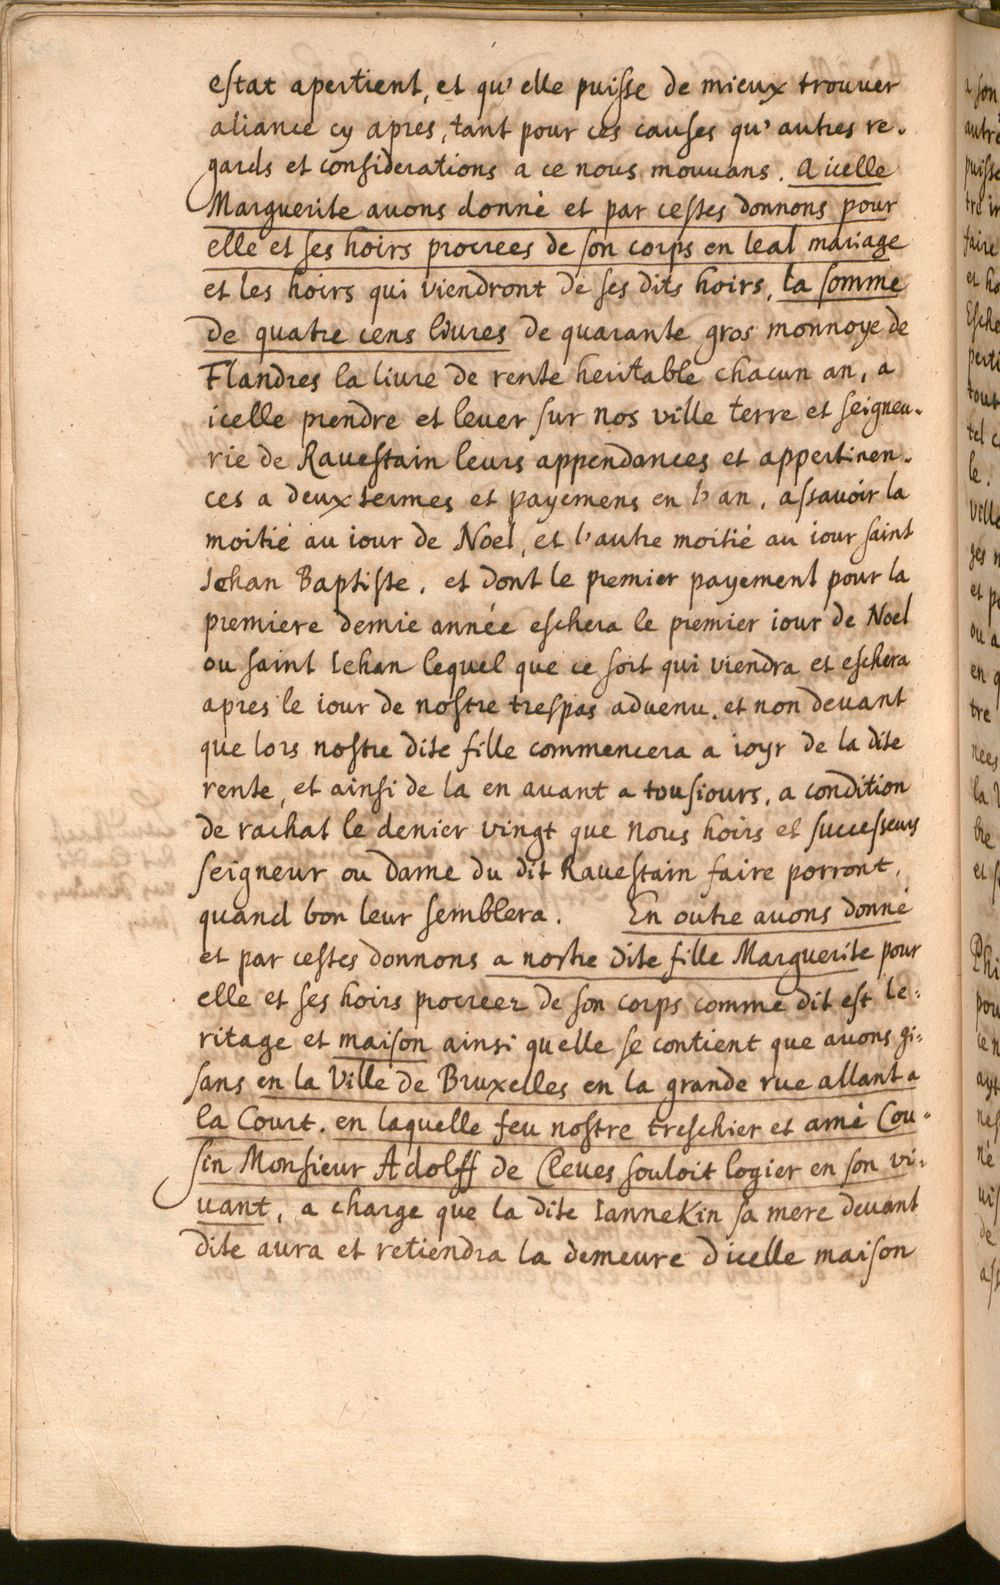 estat apertient, et qu'elle puisse de mieux trouver
aliance cy apres, tant pour ces causes qu'autres re-
gards et considerations a ce nous mouuans. A icelle
Marguerite auons donné et par cestes donnons pour
elle et ses hoirs procrees de son corps en leal mariage
et les hoirs qui viendront de ses dits hoirs, la somme
de quatre cens liures de quarante gros monnoye de
Flandres la liure de rente heritable chacun an, a
icelle prendre et leuer sur nos ville terre et seigneu-
rie de Rauestain leurs appendances et appertinen-
ces a deux termes et payemens en l'an, assavoir la
moitié au iour de Noel, et l'autre moitié au iour saint
Iehan Baptiste. et dont le premier payement pour la
premiere demie année eschera le premier iour de Noel
ou saint Iehan lequel que ce soit qui viendra et eschera
apres le iour de nostre trespas aduenu. et non deuant
que lors nostre dite fille commencera a ioyr de la dite
rente, et ainsi de la en auant a tousiours, a condition
de rachat le denier vingt que nous hoirs et successeurs
seigneur ou Dame du dit Rauestain faire porront,
quand bon leur semblera. En outre auons donné
et par cestes donnons a nostre dite fille Marguerite pour
elle et ses hoirs procreez de son corps comme dit est le=
ritage et maison ainsi quelle se contient que auons gi=
sans en la Ville de Bruxelles en la grande rue allant a
la Court. en laquelle feu nostre treschier et amé Cou-
sin Monsieur Adolff de Cleues souloit logier en son vi-
uant, a charge que la dite Iannekin sa mere deuant
dite aura et retiendra la demeure d'icelle maison